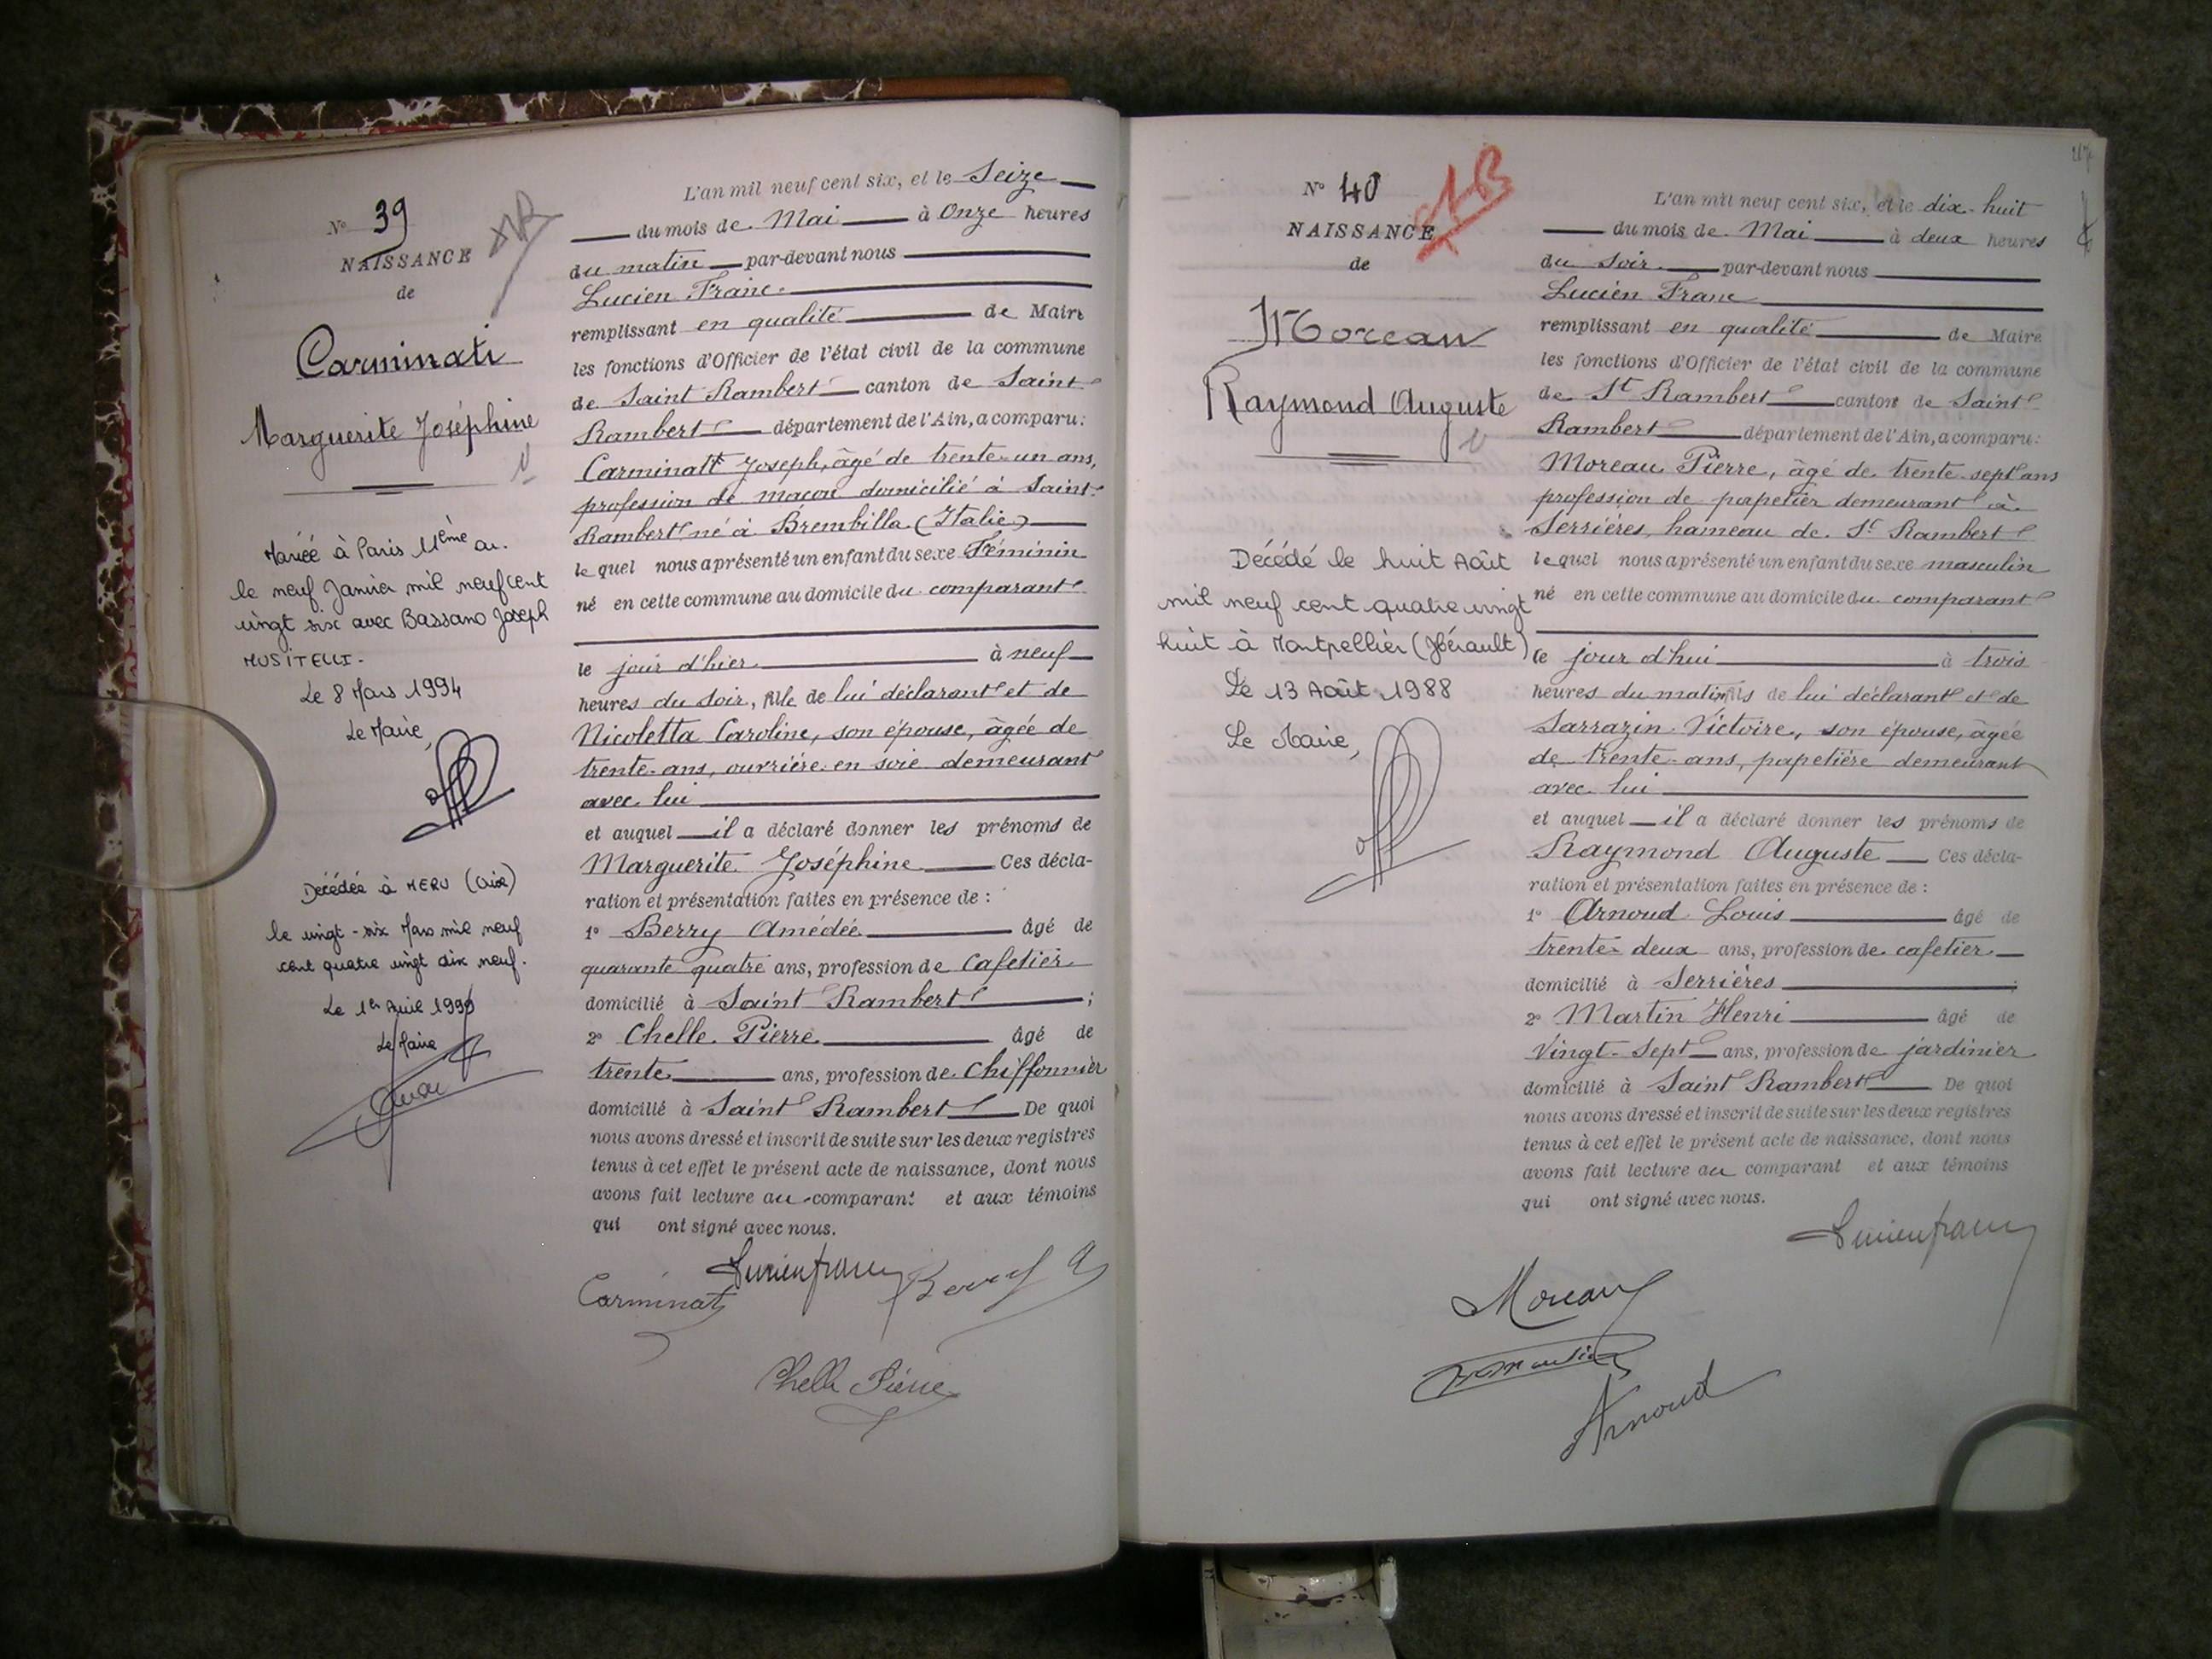 N° 39
NAISSANCE
de
Carminati
Marguerite Joséphine
Mariée à Paris 11ème ar.
le neuf Janvier mil neuf cent
vingt six avec Bassano Joseph
MUSITELLI.
Le 8 Mars 1994
Le Maire,
Décédée à MERU (Oise)
le vingt-six Mars mil neuf
cent quatre vingt dix neuf.
Le 1er Avril 1999
Le Maire
L'an mil neuf cent six, et le Seize
du mois de Mai à Onze heures
du matin par-devant nous
Lucien Franc
remplissant en qualité de Maire
les fonctions d'Officier de l'état civil de la commune
de Saint Rambert canton de Saint
Rambert département de l'Ain, a comparu:
Carminati Joseph, âgé de trente-un ans,
profession de maçon domicilié à Saint-
Rambert né à Brembilla (Italie)
lequel nous a présenté un enfant du sexe Féminin
né en cette commune au domicile du comparant
le jour d'hier à neuf
heures du soir, fille de lui déclarant et de
Nicoletta Caroline, son épouse, âgée de
trente-ans, ouvrière en soie demeurant
avec lui
et auquel il a déclaré donner les prénoms de
Marguerite Joséphine Ces décla-
ration et présentation faites en présence de :
1° Berry Amédée âgé de
quarante quatre ans, profession de Cafetier
domicilié à Saint Rambert ;
2° Chelle Pierre âgé de
trente ans, profession de Chiffonnier
domicilié à Saint Rambert De quoi
nous avons dressé et inscrit de suite sur les deux registres
tenus à cet effet le présent acte de naissance, dont nous
avons fait lecture au comparant et aux témoins
qui ont signé avec nous.
Lucien franc
Carminati
Chelle Pierre
N° 40
NAISSANCE
de
Moreau
Raymond Auguste
Décédé le huit Août
mil neuf cent quatre vingt
huit à Montpellier (Hérault)
Le 13 Août 1988
Le Maire,
L'an mil neuf cent six, et le dix-huit
du mois de Mai à deux heures
du soir par-devant nous
Lucien Franc
remplissant en qualité de Maire
les fonctions d'Officier de l'état civil de la commune
de St Rambert canton de Saint
Rambert département de l'Ain, a comparu:
Moreau Pierre, âgé de trente-sept ans
profession de papetier demeurant à
Serrières, hameau de St Rambert
lequel nous a présenté un enfant du sexe masculin
né en cette commune au domicile du comparant
le jour d'hui à trois
heures du matin fils de lui déclarant et de
Sarrazin Victoire, son épouse, âgée
de trente-ans, papetière demeurant
avec lui
et auquel il a déclaré donner les prénoms de
Raymond Auguste Ces décla-
ration et présentation faites en présence de :
1° Arnoud Louis âgé de
trente-deux ans, profession de cafetier
domicilié à Serrières ;
2° Martin Henri âgé de
Vingt-Sept ans, profession de jardinier
domicilié à Saint Rambert De quoi
nous avons dressé et inscrit de suite sur les deux registres
tenus à cet effet le présent acte de naissance, dont nous
avons fait lecture au comparant et aux témoins
qui ont signé avec nous.
Lucien franc
Moreau
Arnoud